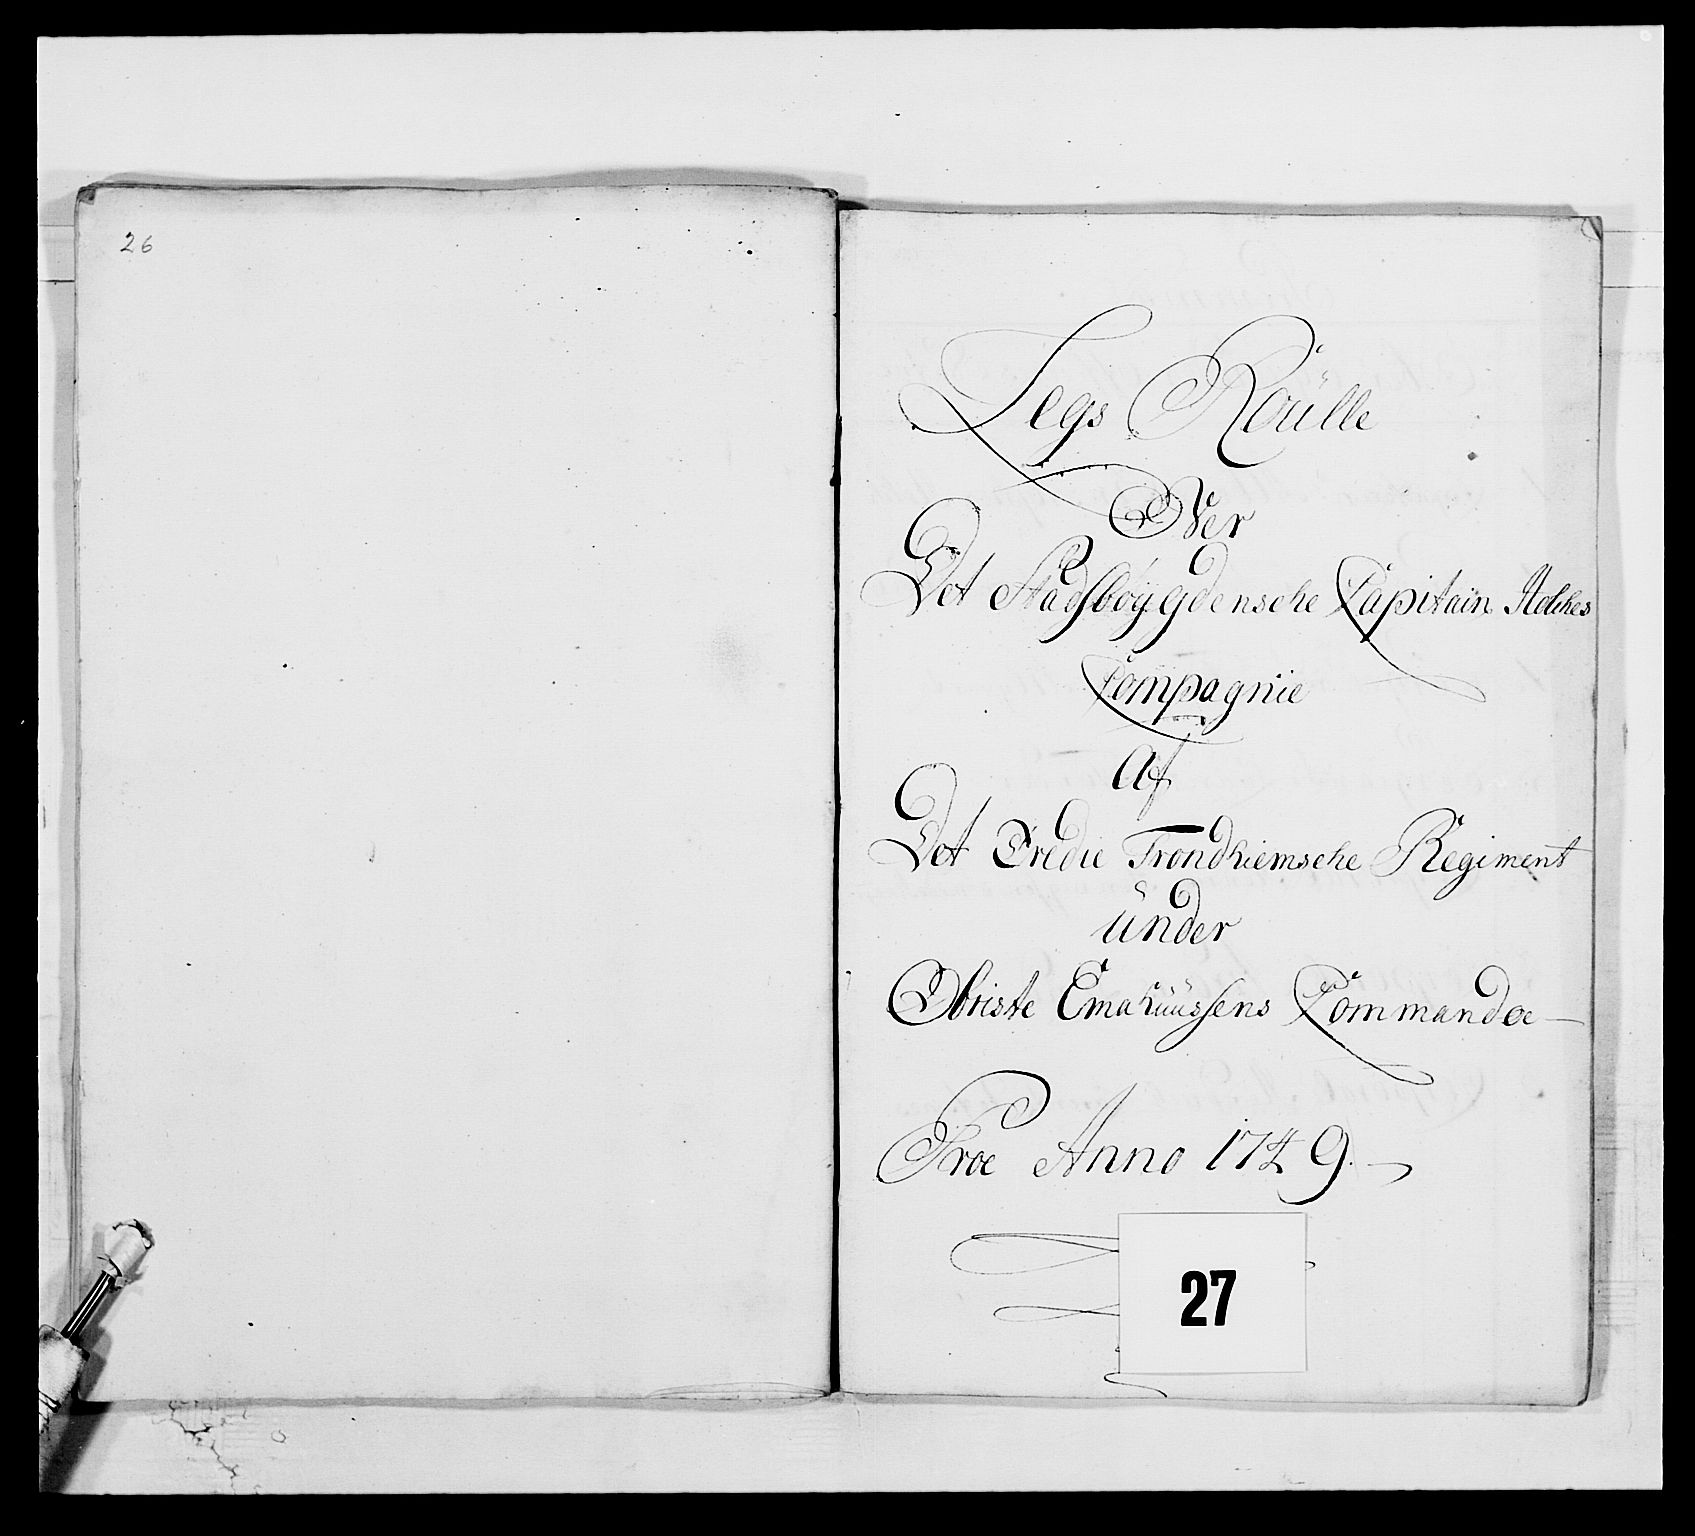 26
Legs Roülle
Over
Det Stadsböygdensche Capitain Holches
Compagnie
Af
Det Tredie Trondhiemsche Regiment
ünder
Obriste Emahüüssens Commandoe
Proe Anno 1749.
27